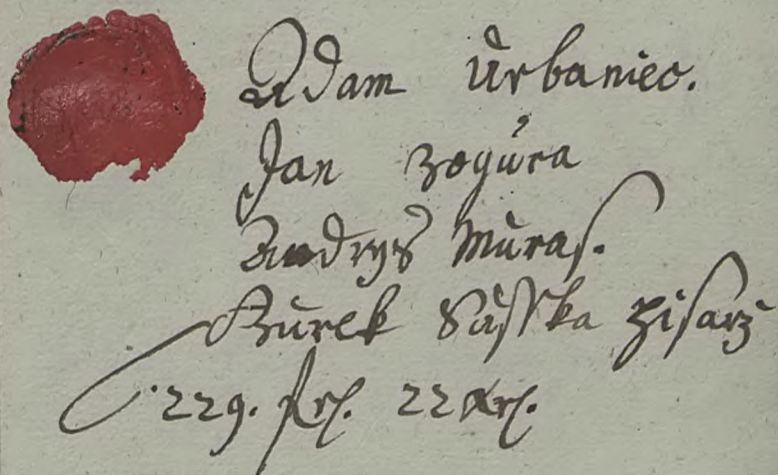 Adam Urbaniec.
Jan Zogůra
Andrys Můras.
Bůrek Sůsska pisarz
229. frl. 22 Xrl.